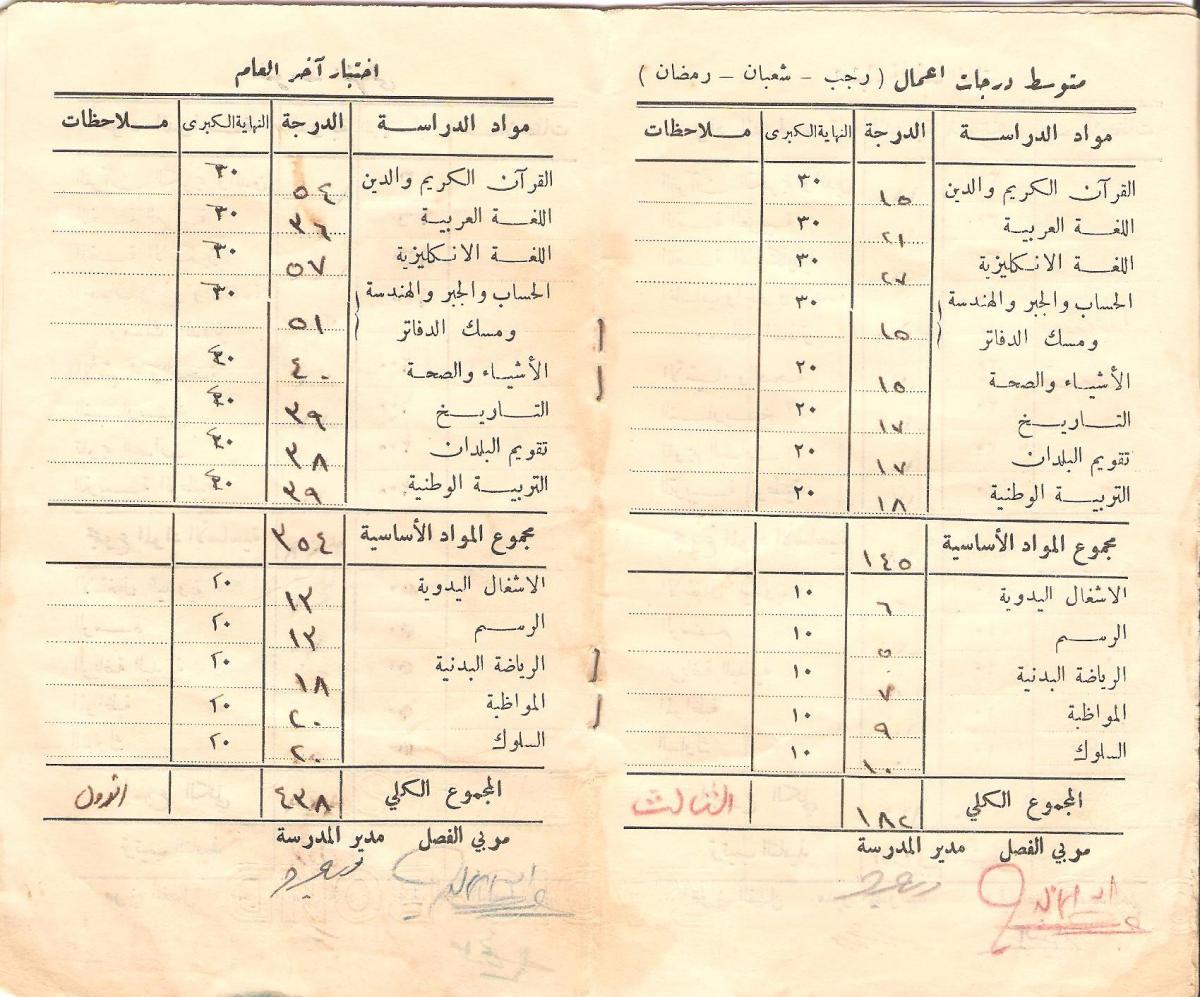 متوسط درجات اعمال ( رجب – شعبان – رمضان )
مواد الدراسة الدرجة النهاية الكبرى ملاحظات
القرآن الكريم والدين ١٥ ٣٠
اللغة العربية ٢١ ٣٠
اللغة الانكليزية ٢٧ ٣٠
الحساب والجبر والهندسة ٣٠
ومسك الدفاتر ١٥
الأشياء والصحة ١٥ ٢٠
التاريخ ١٧ ٢٠
تقويم البلدان ١٧ ٢٠
التربية الوطنية ١٨ ٢٠
مجموع المواد الأساسية ١٤٥
الاشغال اليدوية ٦ ١٠
الرسم ٥ ١٠
الرياضة البدنية ٧ ١٠
المواظبة ٩ ١٠
السلوك ١٠ ١٠
المجموع الكلي ١٨٢ الثالث
مربي الفصل مدير المدرسة
اختبار آخر العام
مواد الدراسة الدرجة النهاية الكبرى ملاحظات
القرآن الكريم والدين ٥٤ ٣٠
اللغة العربية ٣٦ ٣٠
اللغة الانكليزية ٥٧ ٣٠
الحساب والجبر والهندسة ٣٠
ومسك الدفاتر ٥١
الأشياء والصحة ٤٠
التاريخ ٣٩
تقويم البلدان ٣٨
التربية الوطنية ٣٩
مجموع المواد الأساسية ٣٥٤
الاشغال اليدوية ١٣ ٢٠
الرسم ١٣ ٢٠
الرياضة البدنية ١٨ ٢٠
المواظبة ٢٠ ٢٠
السلوك ٢٠ ٢٠
المجموع الكلي ٤٣٨ الأول
مربي الفصل مدير المدرسة